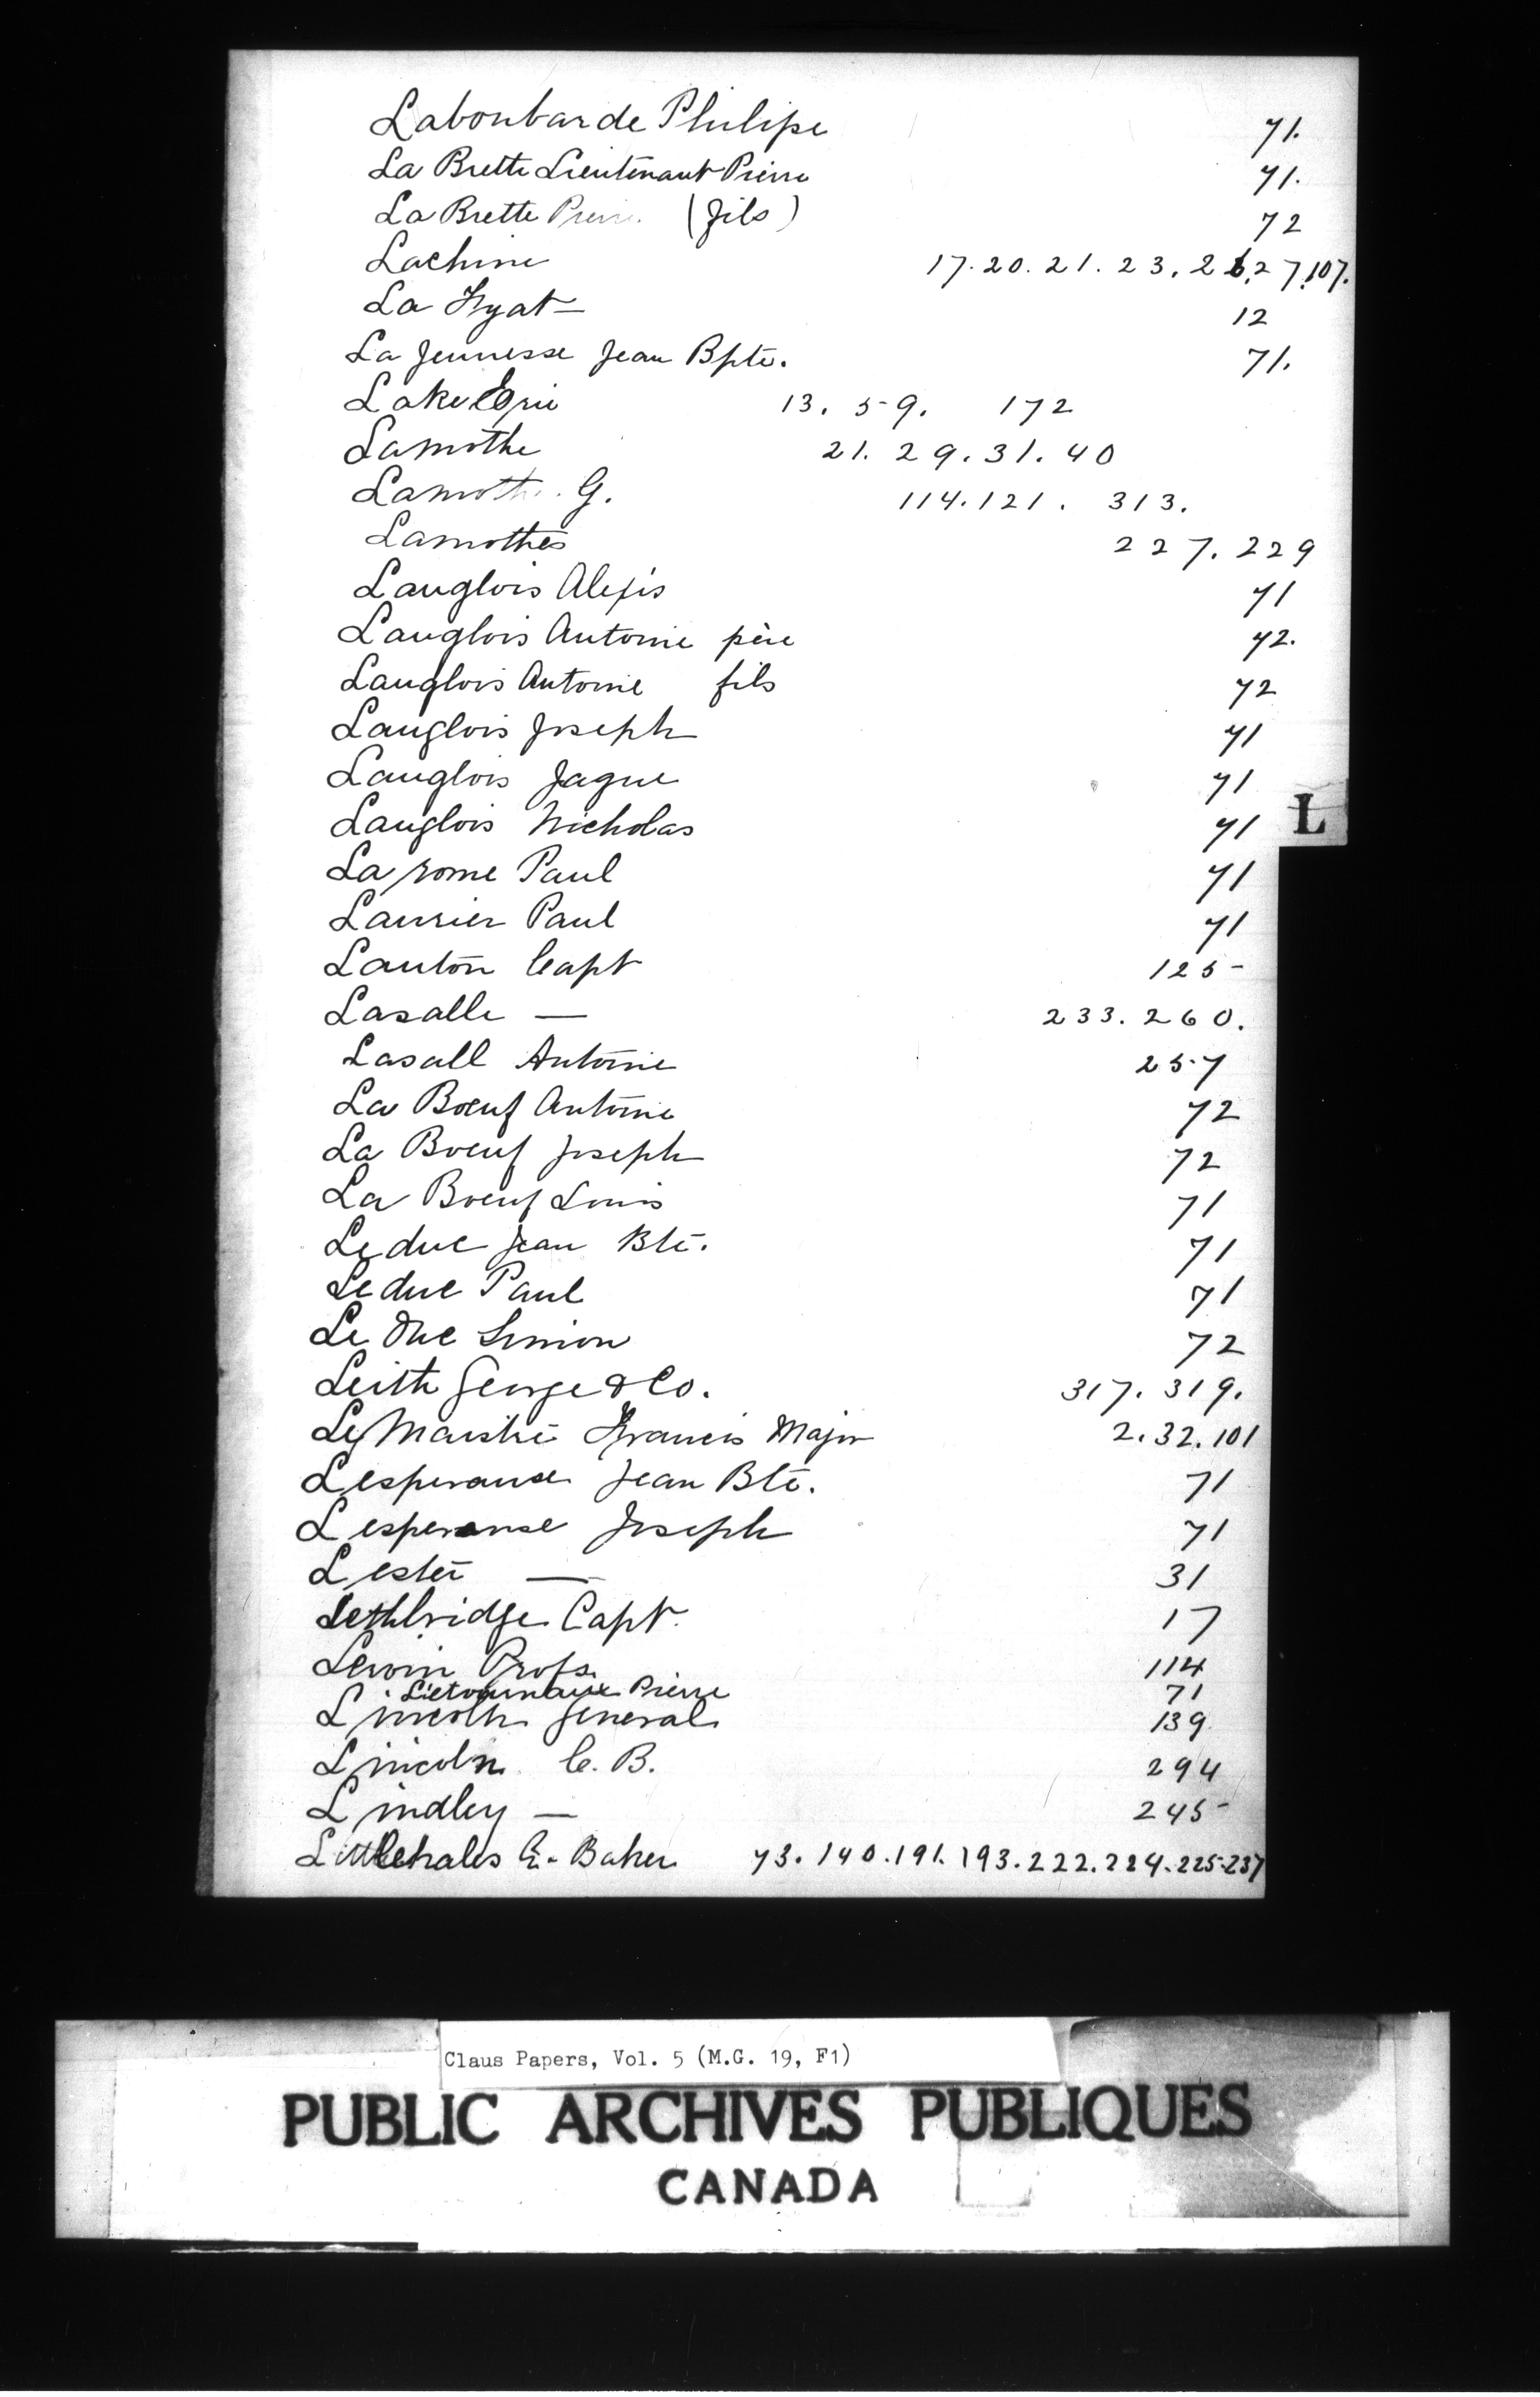 Labonbarde Philipe 71.
La Brette Lieutenant Pierre 71.
La Brette Pierre (fils) 72
Lachine 17. 20. 21. 23. 26. 27. 107.
La 12
La Jeunesse Jean Bpte. 71.
Lake Erie 13. 59. 172
Lamothe 21. 29. 31. 40
Lamothe G. 114. 121. 313.
Lamothes 227. 229
Langlois Alexis 71
Langlois Antoine père 72.
Langlois Antoine fils 72
Langlois Joseph 71
Langlois Jaque 71
Langlois Nicholas 71
La rome Paul 71
Laurier Paul 71
Lauton Capt 125
Lasalle — 233. 260.
Lasall Antoine 257
La Boeuf Antoine 72
La Boeuf Joseph 72
La Boeuf Louis 71
Leduc Jean Bte. 71
Leduc Paul 71
Le Duc Simion 72
Leith George & Co. 317. 319.
Le Maistre Francis Major 2. 32. 101
Lesperance Jean Bte. 71
Lesperance Joseph 71
Lester — 31
Lethbridge Capt. 17
Lewin Profs. 114
Lietournaux Pierre 71
Lincoln General 139
Lincoln C. B. 294
Lindley — 245
Littlehales E. Baker 73. 140. 191. 193. 222. 224. 225. 237
L
Claus Papers, Vol. 5 (M.G. 19, F1)
PUBLIC ARCHIVES PUBLIQUES
CANADA